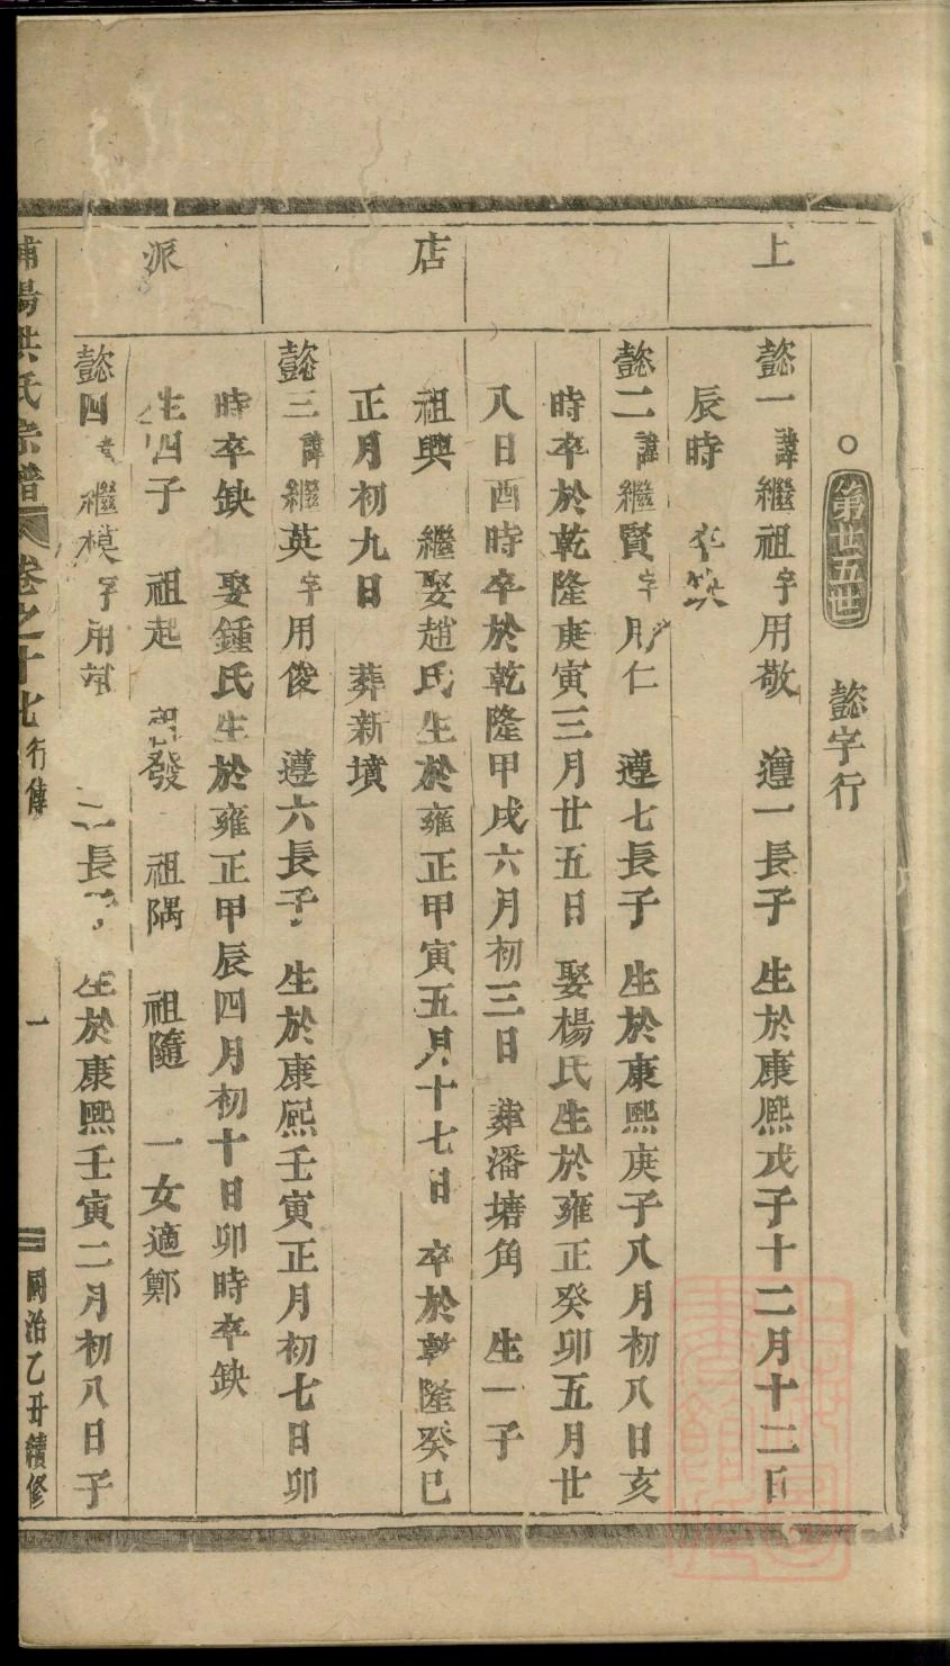 上
店
派
○第卅五世 懿字行
懿一諱繼祖字用敬 遵一長子 生於康熙戊子十二月十二日
辰時 卒缺
懿二諱繼賢字用仁 遵七長子 生於康熙庚子八月初八日亥
時卒於乾隆庚寅三月廿五日 娶楊氏生於雍正癸卯五月廿
八日酉時卒於乾隆甲戌六月初三日 葬潘塘角 生一子
祖興 繼娶趙氏生於雍正甲寅五月十七日 卒於乾隆癸巳
正月初九日 葬新墳
懿三諱繼英字用俊 遵六長子 生於康熙壬寅正月初七日卯
時卒缺 娶鍾氏生於雍正甲辰四月初十日卯時卒缺
生四子 祖起 祖發 祖隅 祖隨 一女適鄭
懿四 繼模字用斌 長子 生於康熙壬寅二月初八日子
浦陽洪氏宗譜 卷之十七 行傳 一 同治乙丑續修